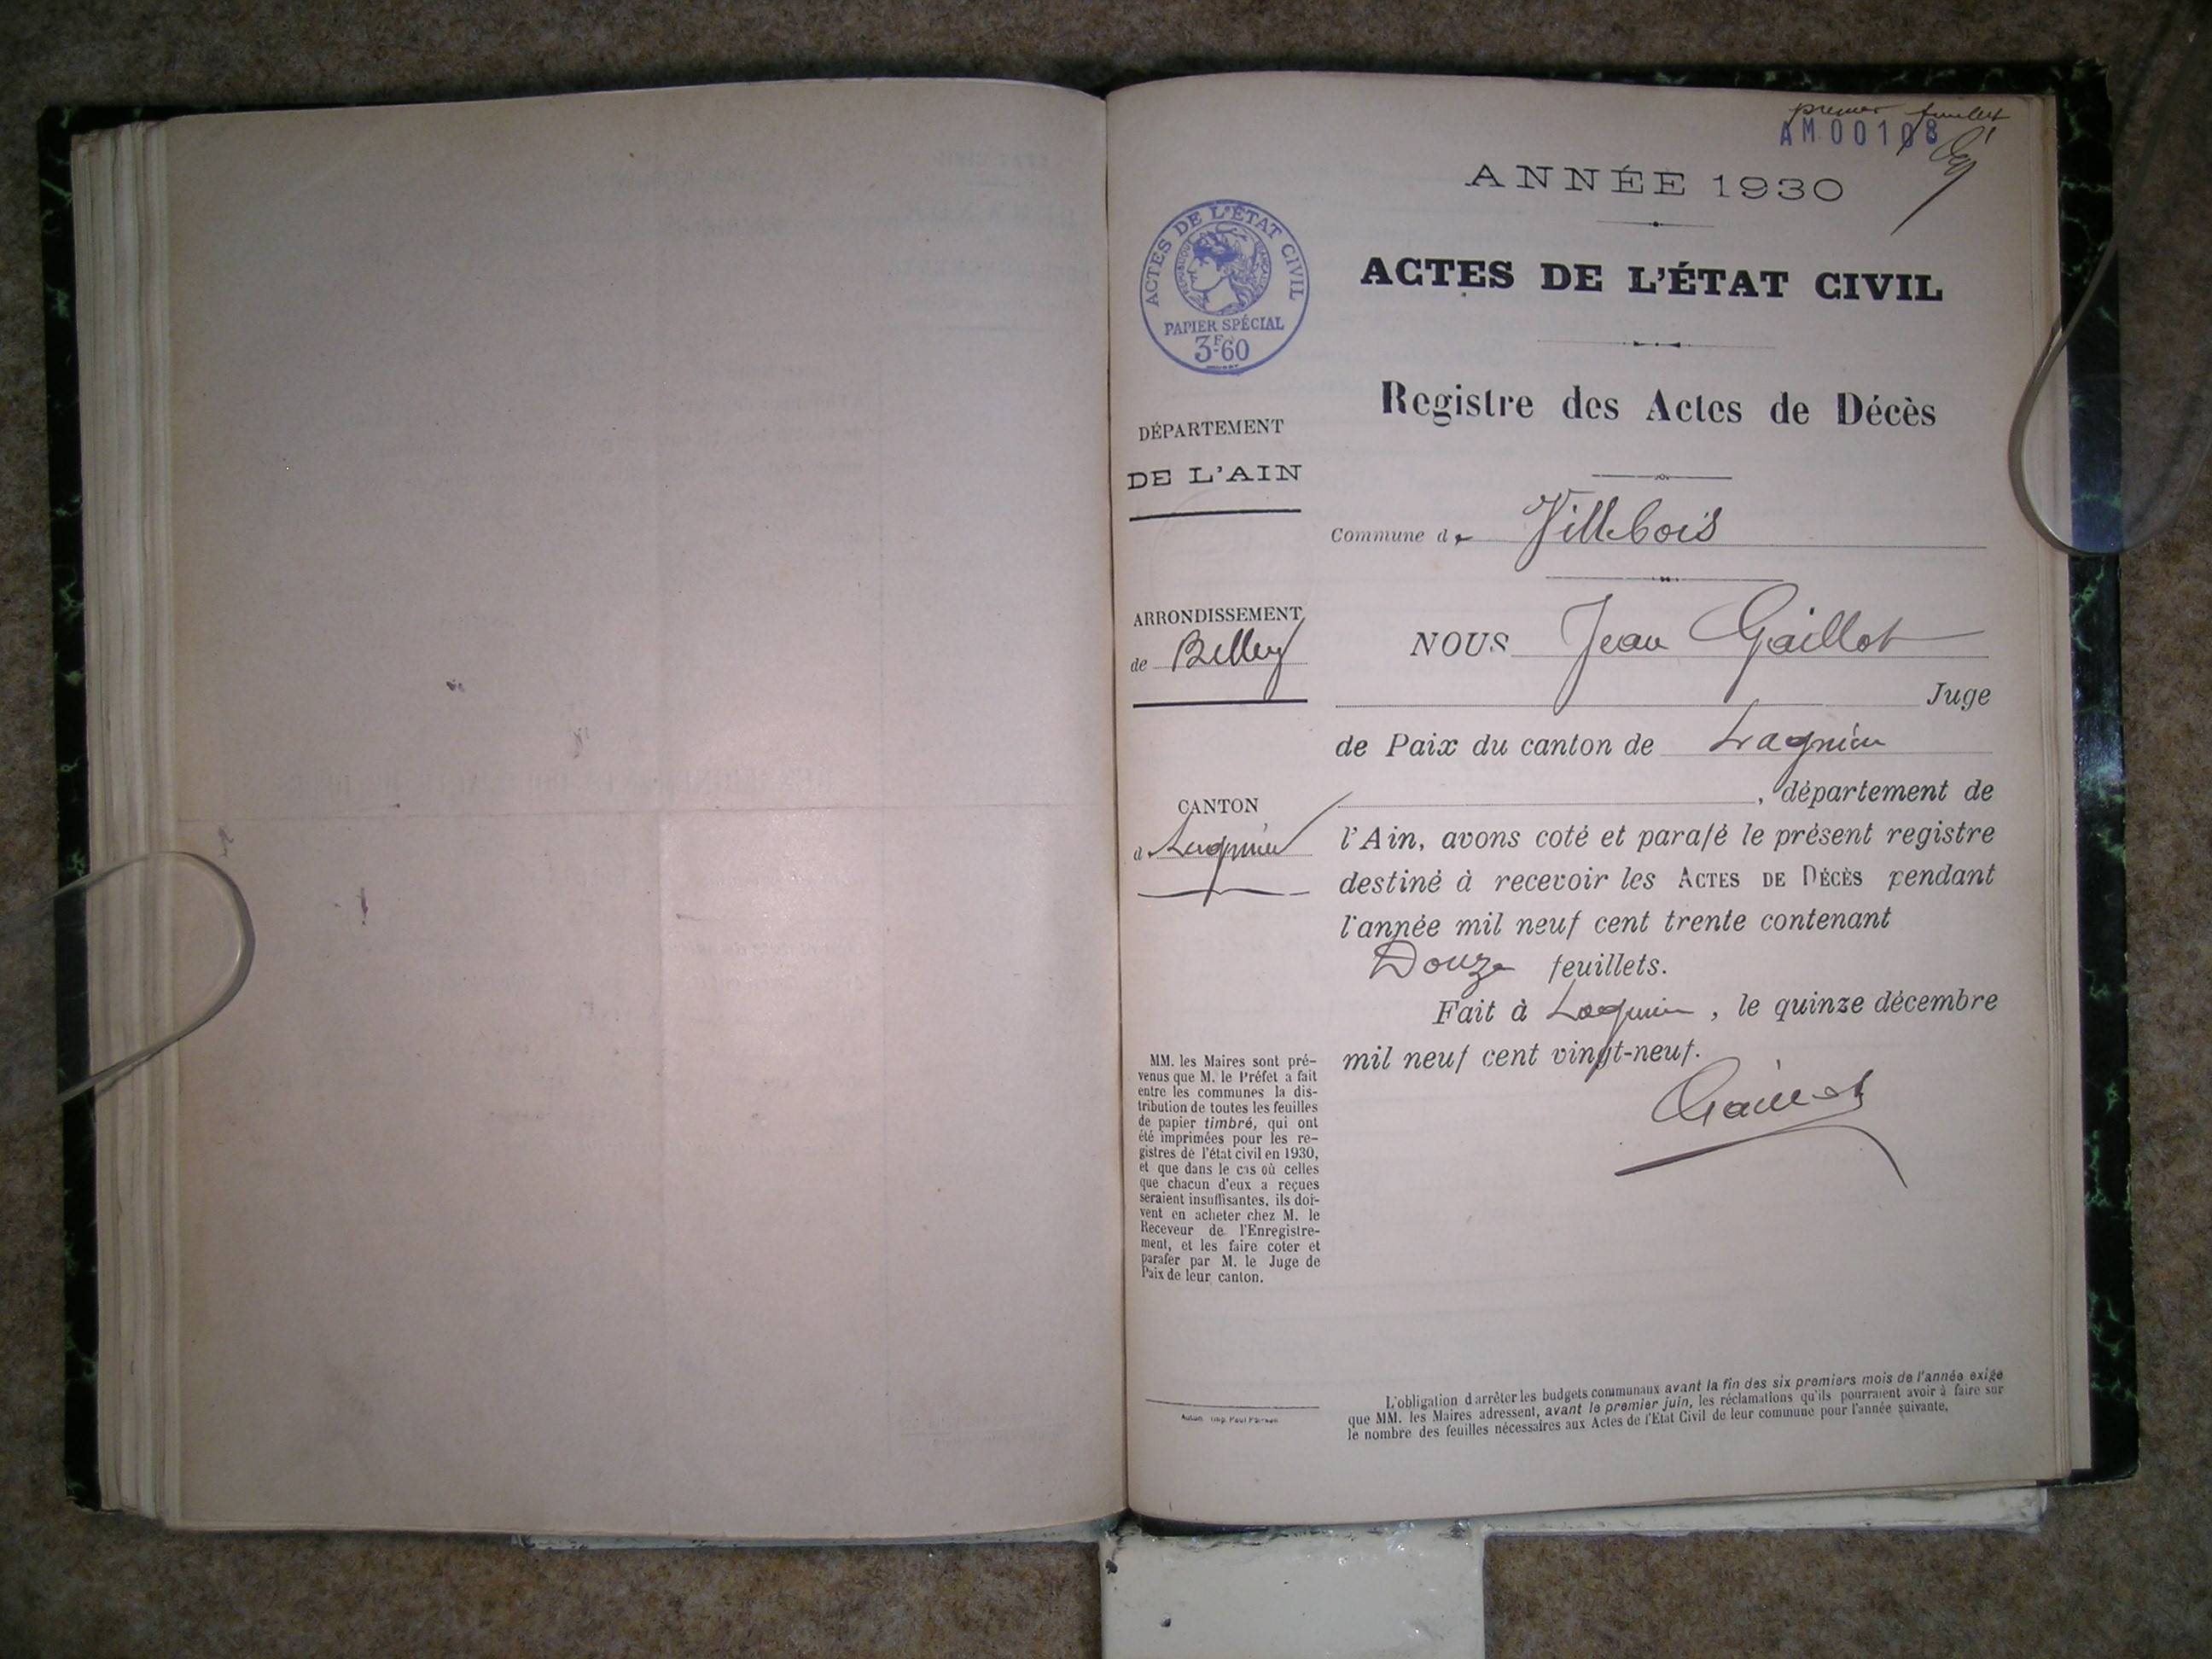 premier feuillet
AM00108
ANNÉE 1930
ACTES DE L'ÉTAT CIVIL
RÉPUBLIQUE FRANÇAISE
PAPIER SPÉCIAL
3F60
ACTES DE L'ÉTAT CIVIL
Registre des Actes de Décès
DÉPARTEMENT
DE L'AIN
Commune de Villebois
ARRONDISSEMENT
de Belley
NOUS Jean Gaillot
Juge
de Paix du canton de Lagnieu
, département de
CANTON
de Lagnieu
l'Ain, avons coté et parafé le présent registre
destiné à recevoir les ACTES DE DÉCÈS pendant
l'année mil neuf cent trente contenant
Douze feuillets.
Fait à Lagnieu, le quinze décembre
mil neuf cent vingt-neuf.
Gaillot
MM. les Maires sont pré-
venus que M. le Préfet a fait
entre les communes la dis-
tribution de toutes les feuilles
de papier timbré, qui ont
été imprimées pour les re-
gistres de l'état civil en 1930,
et que dans le cas où celles
que chacun d'eux a reçues
seraient insuffisantes, ils doi-
vent en acheter chez M. le
Receveur de l'Enregistre-
ment, et les faire coter et
parafer par M. le Juge de
Paix de leur canton.
L'obligation d'arrêter les budgets communaux avant la fin des six premiers mois de l'année exige
que MM. les Maires adressent, avant le premier juin, les réclamations qu'ils pourraient avoir à faire sur
le nombre des feuilles nécessaires aux Actes de l'Etat Civil de leur commune pour l'année suivante.